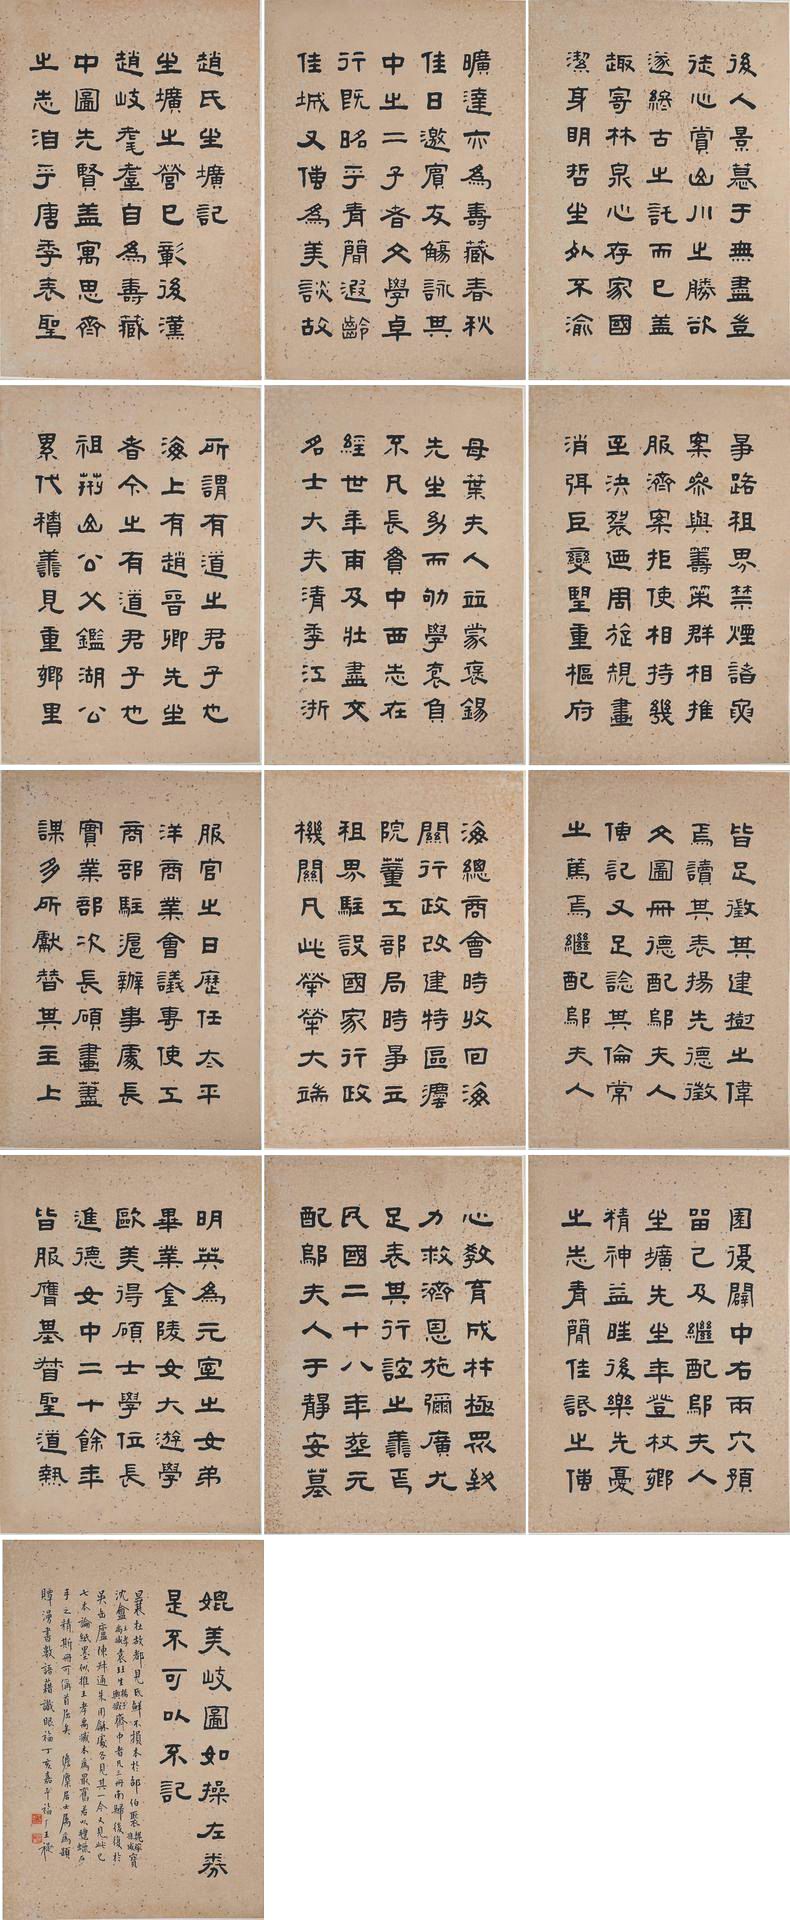 趙氏生壙記
生壙之營已彰後漢
趙岐耄耋自為壽藏
中圖先賢蓋寓思齊
之志洎乎唐季表聖
曠達亦為壽藏春秋
佳日邀賓友觴詠其
中之二子者文學卓
行既昭乎青簡遐齡
佳城又傳為美談故
後人景慕于無盡豈
徒心賞山川之勝欲
遂終古之託而已蓋
趣寄林泉心存家國
潔身明哲生死不渝
所謂有道之君子也
海上有趙晉卿先生
者今之有道君子也
祖荊山公父鑑湖公
累代積善見重鄉里
母葉夫人並蒙褒錫
先生幼而劬學負
不凡長貫中西志在
經世年甫及壯盡交
名士大夫清季江浙
爭路租界禁煙諸
案參與籌策群相推
服濟案拒使相持幾
至決裂迺周旋規畫
消弭巨變望重樞府
服官之日歷任太平
洋商業會議專使工
商部駐滬辦事處長
實業部次長碩畫藎
謀多所獻替其主上
海總商會時收回海
關行政改建特區灋
院董工部局時爭立
租界駐設國家行政
機關凡此犖犖大端
皆足徵其建樹之偉
焉讀其表揚先德徵
文圖冊德配鄔夫人
傳記又足諗其倫常
之篤焉繼配鄔夫人
明英為元室之女弟
畢業金陵女大遊學
歐美得碩士學位長
進德女中二十餘年
皆服膺基督聖道熱
心教育成材極眾致
力救濟恩施彌廣尤
足表其行誼之善焉
民國二十八年葬元
配鄔夫人于靜安墓
園復闢中右兩穴預
留己及繼配鄔夫人
生壙先生年登杖鄉
精神益旺後樂先憂
之志青簡佳話之傳
媲美岐圖如操左券
是不可以不記
曩在故都見氏鮮不損本於邵伯褧
吳缶廬陳
七本論紙墨似推王孝禹藏本為最舊若以
手之精斯冊可偁首屈矣
數語藉識眼福丁亥嘉平福厂王禔